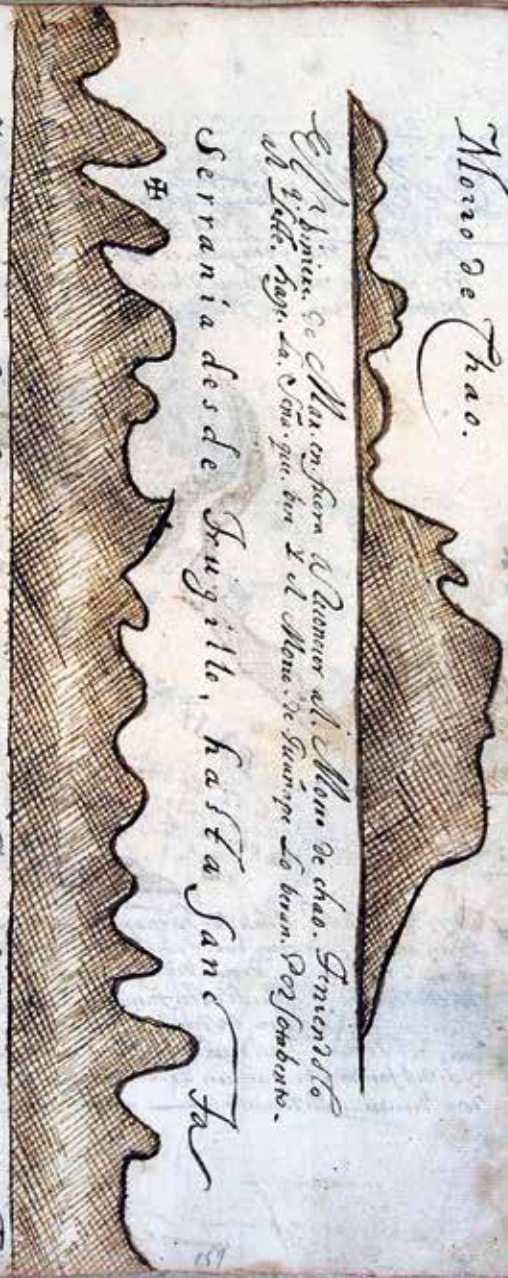 Morro de Chao.
El q̃ biniere de Mar en fuera a Reconocer al Morro de chao. Teniendolo
al Leste. haze. La. Seña. que. ben Y el Morro. de Guañape Lo beran. Por Sotabento.
Serrania desde Trugillo, hasta Sancta
159